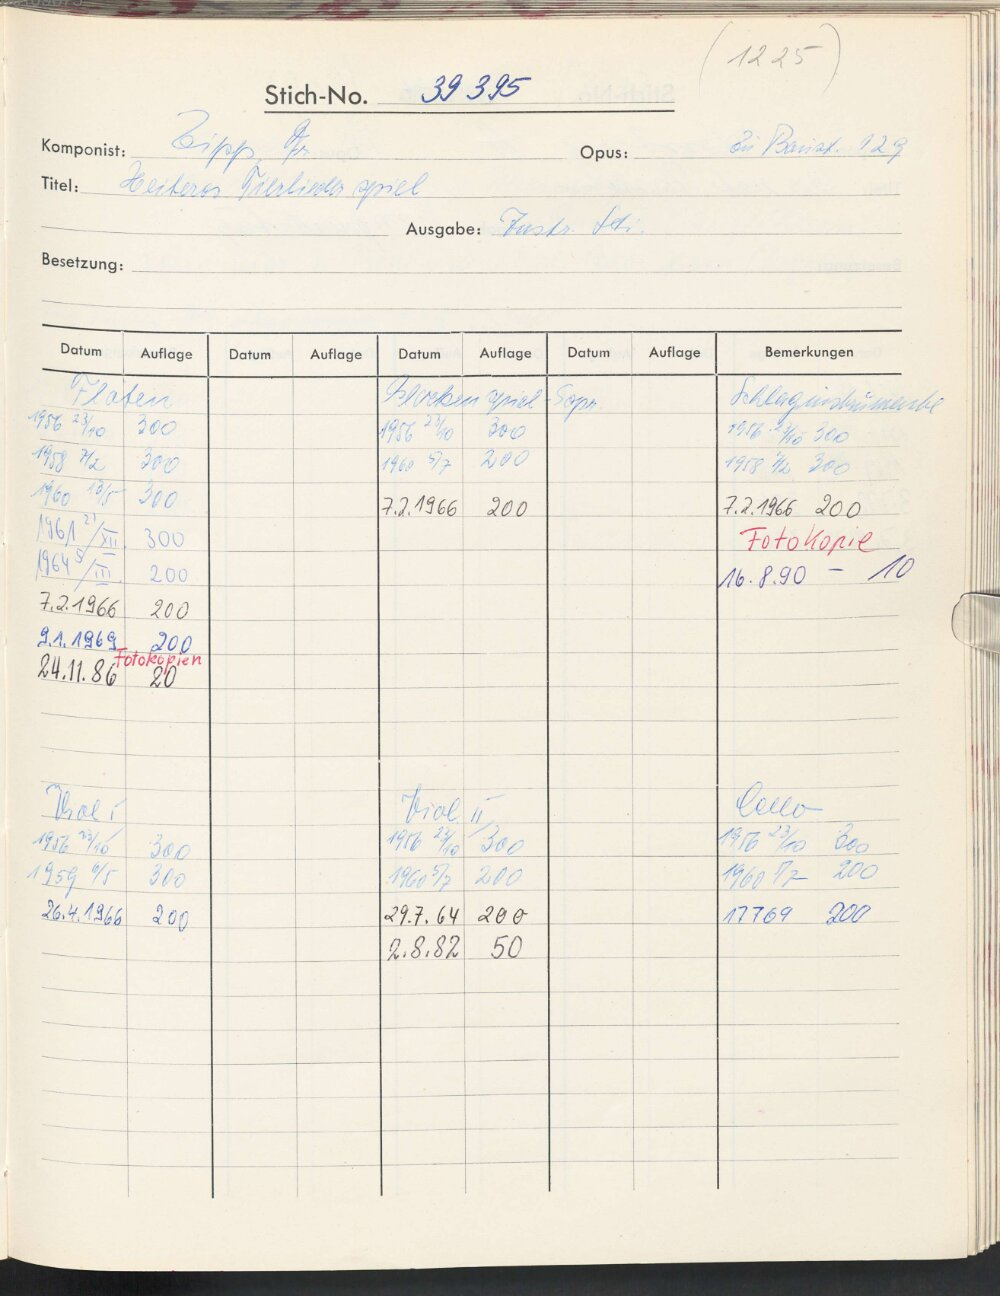 (1225)
Stich-No. 39 395
Komponist: Zipp, Fr. Opus: Zu Baust. 129
Titel: Heiteres Tierliederspiel
Ausgabe: Instr. Sti.
Besetzung:
Datum Auflage Datum Auflage Datum Auflage Datum Auflage Bemerkungen
Flöten Glockenspiel-Sopr. Schlaginstrumente
1956 23/10 300 1956 23/10 300 1956 23/10 300
1958 7/2 300 1960 5/7 200 1958 7/2 300
1960 13/5 300 7.2.1966 200 7.2.1966 200
1961 21/XII. 300 Fotokopie
1964 5/III. 200 16.8.90 – 10
7.2.1966 200
9.1.1969 200
Fotokopien
24.11.86 20
Viol I Viol. II Cello
1956 23/10 300 1956 23/10 300 1956 23/10 300
1959 6/5 300 1960 5/7 200 1960 5/7 200
26.4.1966 200 29.7.64 200 17769 200
2.8.82 50